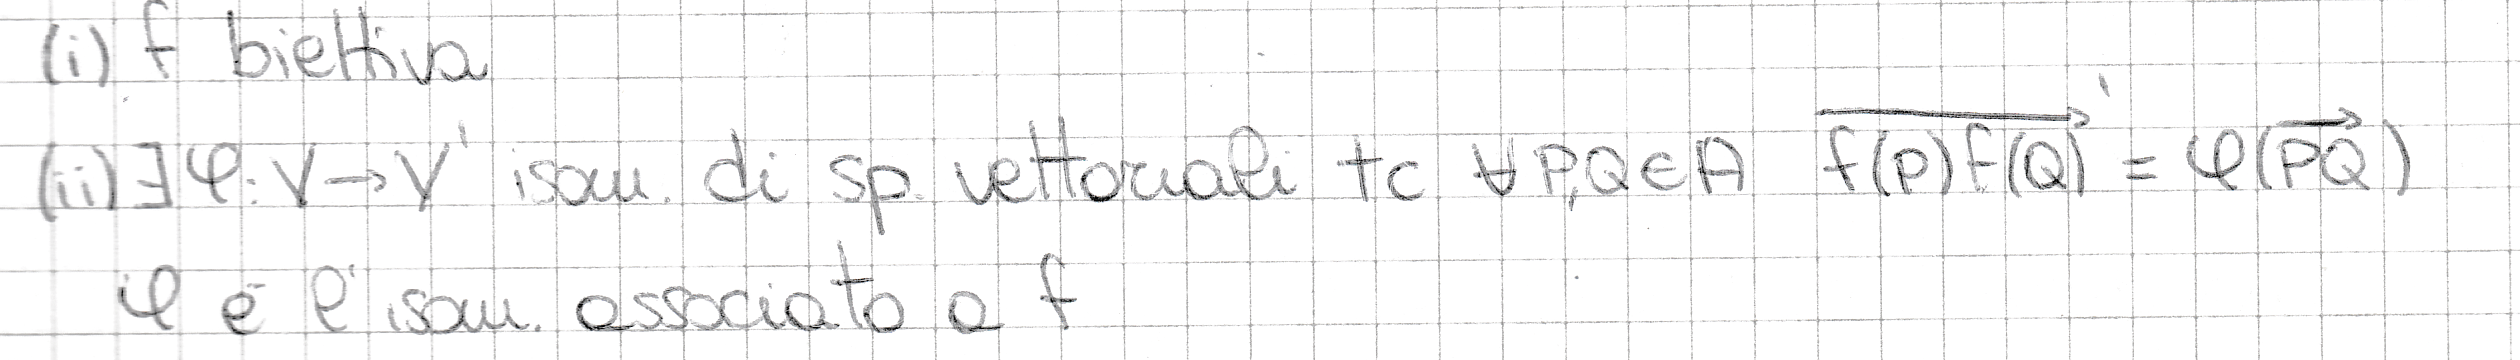 (i) f biettiva
(ii) ∃ φ: V → V' isom. di sp. vettoriali tc ∀ P,Q ∈ A \overrightarrow{f(P)f(Q)}' = φ(\overrightarrow{PQ})
φ è l'isom. associato a f